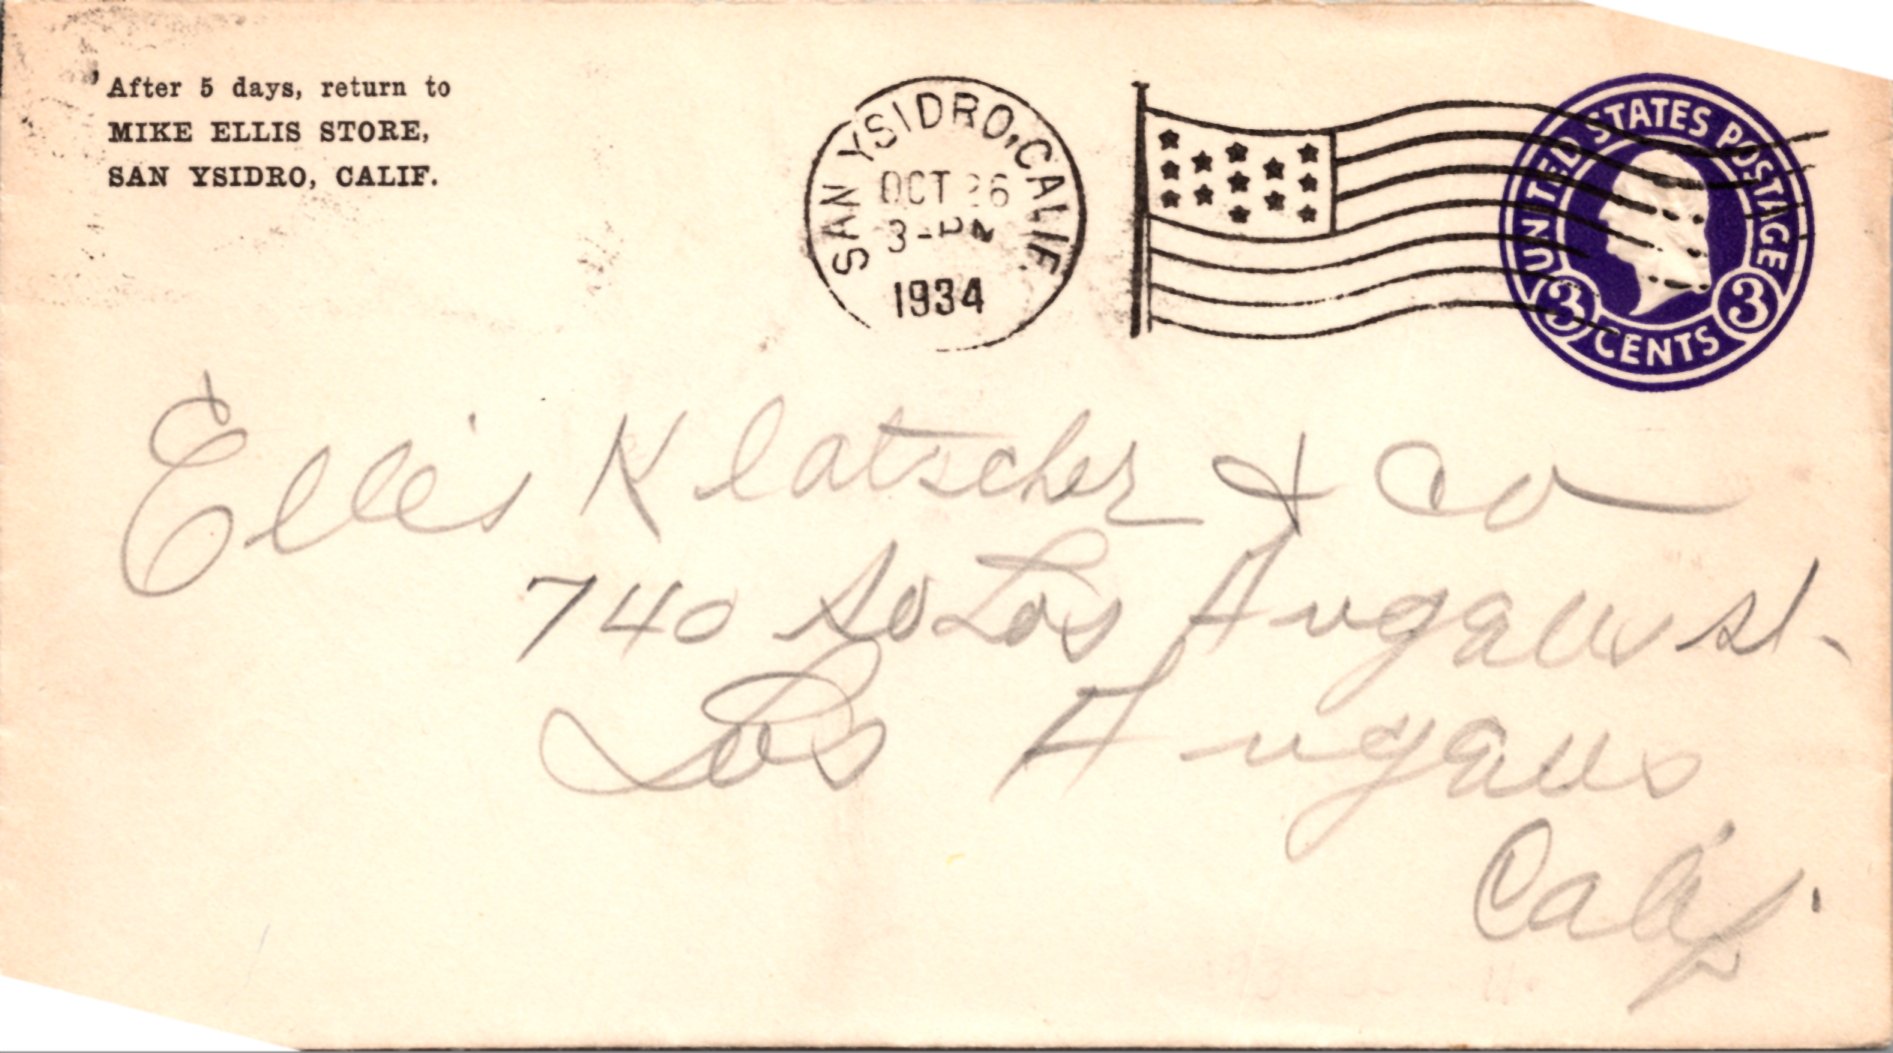 After 5 days, return to
MIKE ELLIS STORE,
SAN YSIDRO, CALIF.
SAN YSIDRO, CALIF.
OCT 26
3-PM
1934
UNITED STATES POSTAGE
3 CENTS 3
Ellis Klatscher & Co
740 So Los Angeles St.
Los Angeles
Calif.